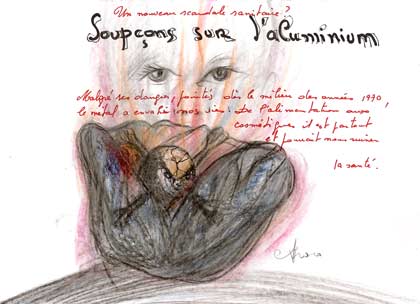 Un nouveau scandale sanitaire ?
Soupçons sur l'aluminium
Malgré ses dangers, pointés dès le milieu des années 1970,
le métal a envahi nos vies : De l'alimentation aux
cosmétiques, il est partout
et pourrait nous ruiner
la santé.